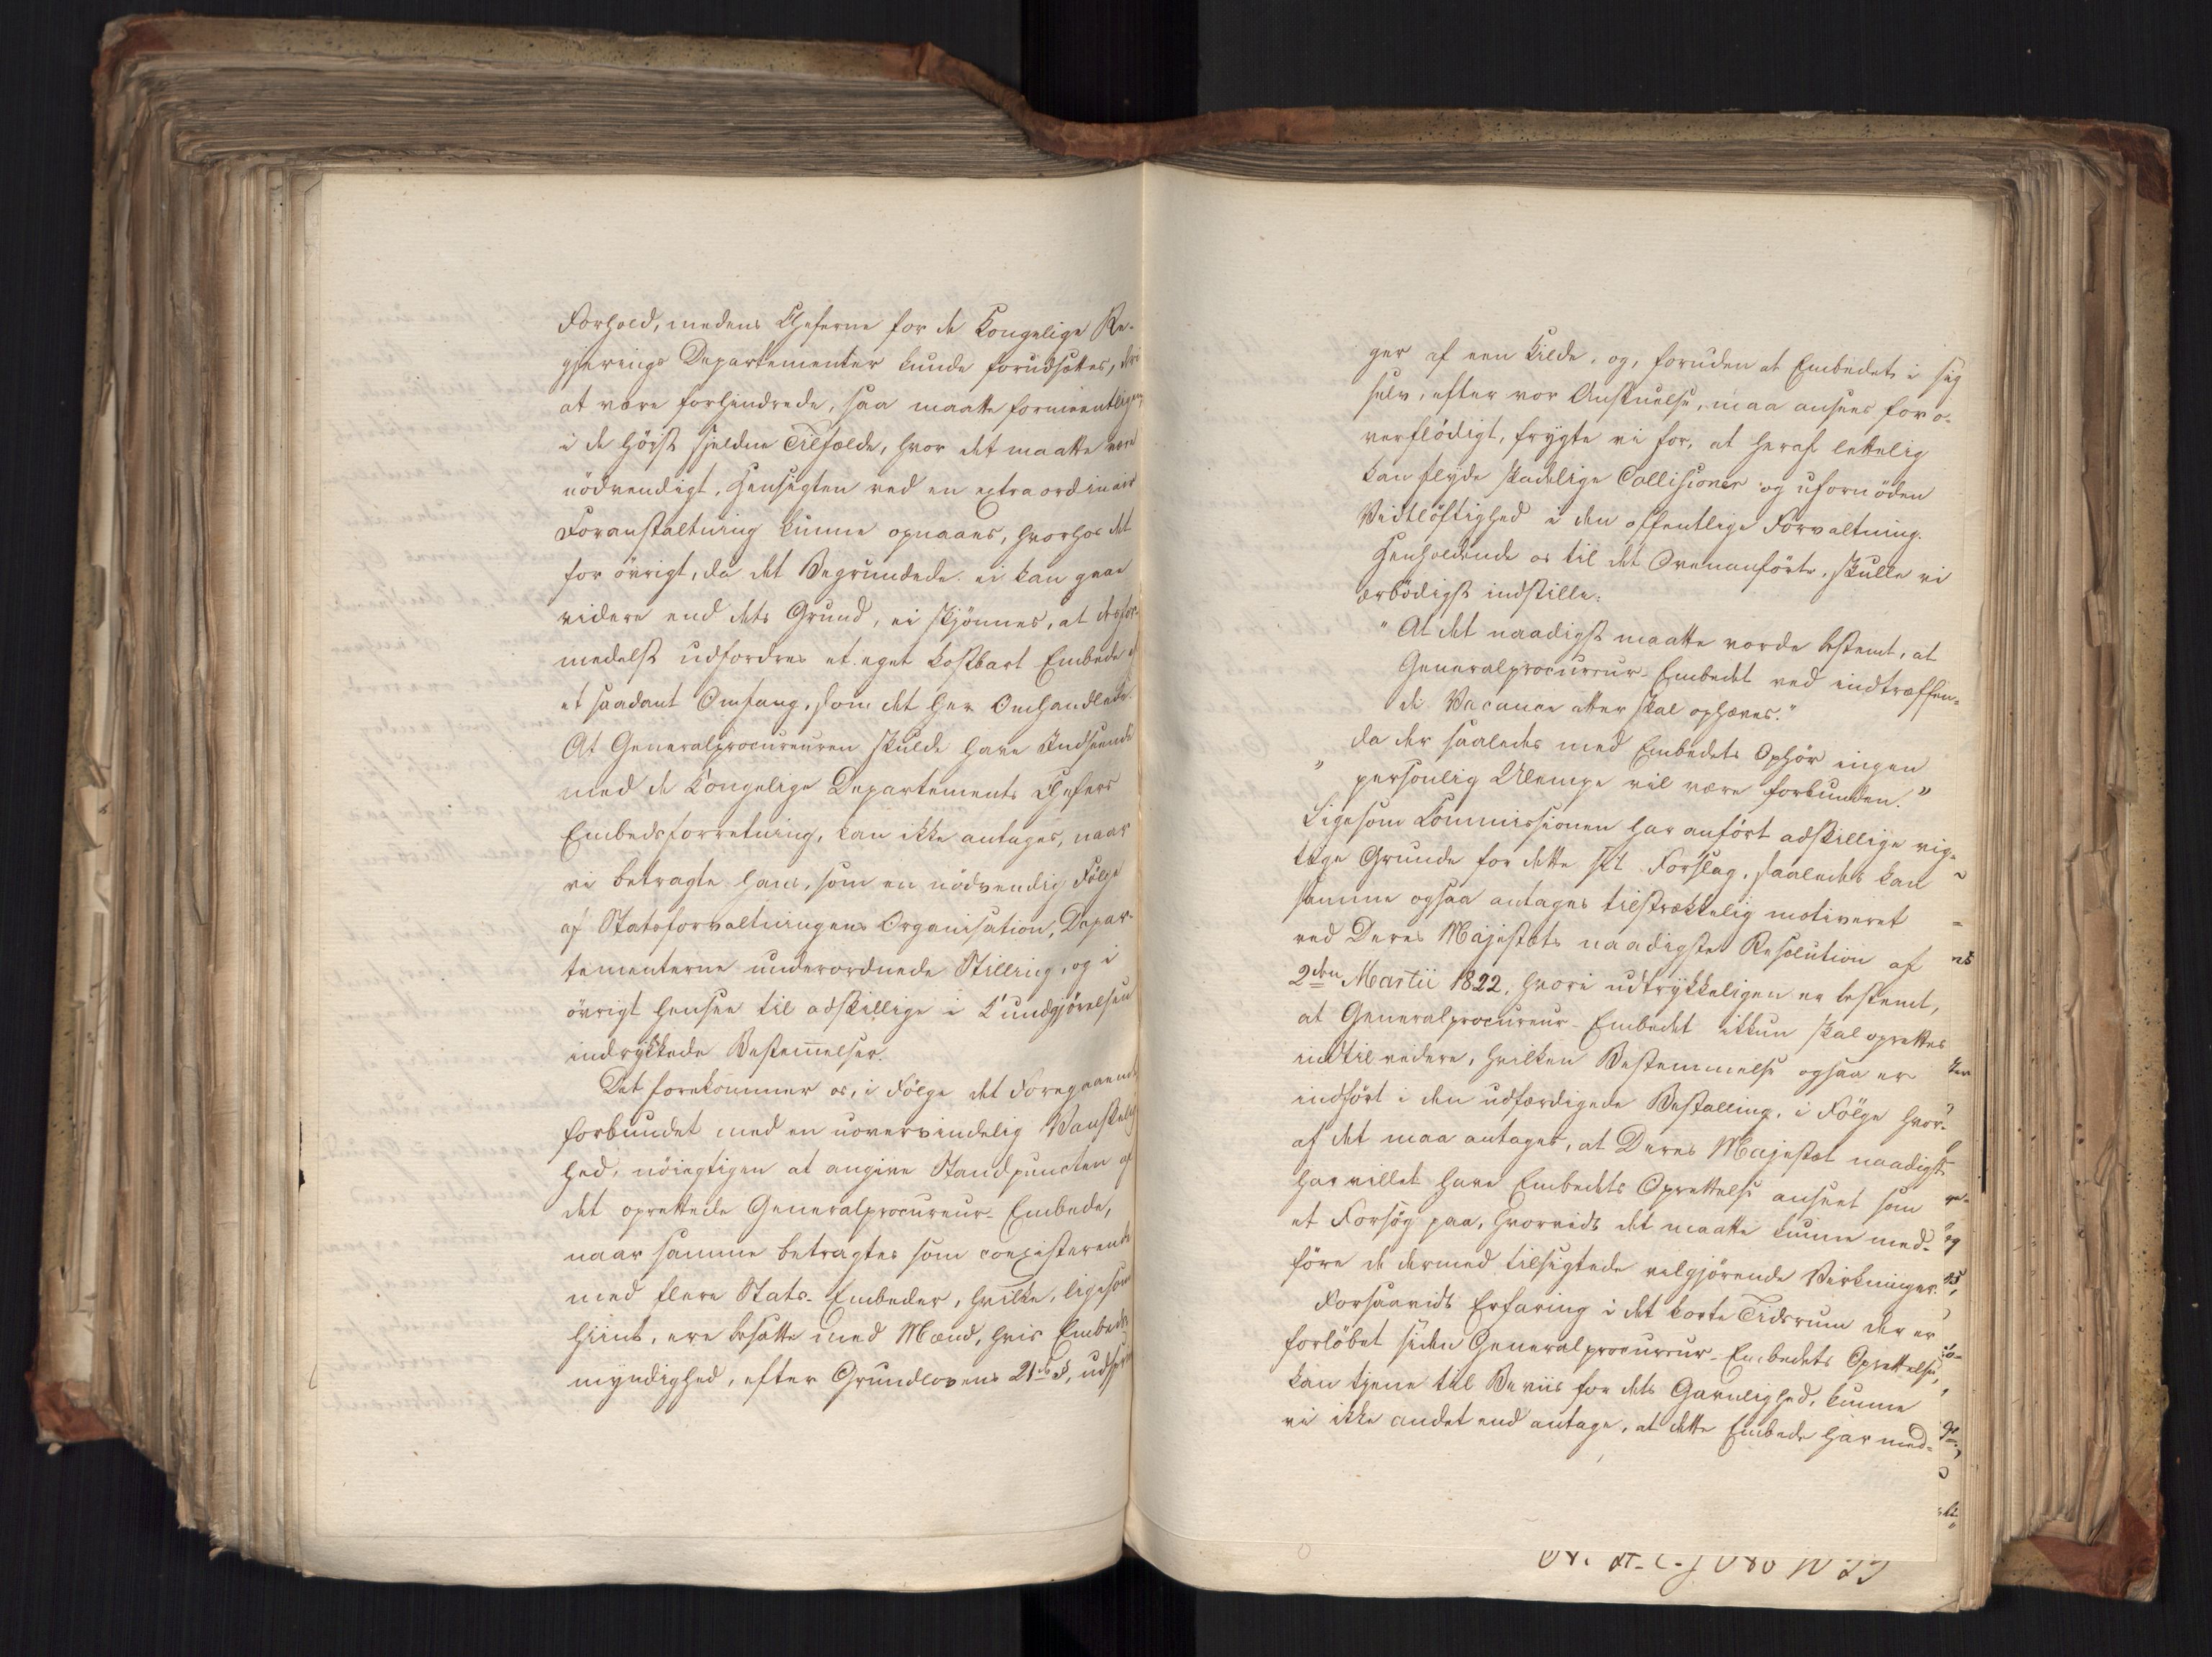 Forhold, medens Cheferne for de Kongelige Re-
gjerings Departementer kunde forudsættes,
at være forhindrede, saa maatte formeentligen,
i de höist sjeldne Tilfælde, hvor det maatte være
nödvendigt, Hensigten ved en extraordinair
Foranstaltning kunne opnaaes, hvorhos det
for övrigt, da det Begrundede ei kan gaae
videre end dets Grund, ei skjönnes, at desfor-
medelst udfordres et eget kostbart Embede af
et saadant Omfang, som det her Omhandlede.
At Generalprocureuren skulde have Indseende
med de Kongelige Departements Chefers
Embedsforretning, kan ikke antages, naar
vi betragte hans, som en nödvendig Fölge
af Statsforvaltningens Organisation, Depar-
tementerne underordnede Stilling, og i
övrigt hensee til adskillige i Kundgjörelsen
indrykkede Bestemelser.
Det forekommer os, i Fölge det Foregaaende
forbundet med en uovervindelig Vanskelig
hed, nöiagtigen at angive Standpuncten af
det oprettede Generalprocureur-Embede,
naar samme betragtes som coexisterende
med flere Stats-Embeder, hvilke, ligesom
hiint, ere besatte med Mænd, hvis Embeds-
myndighed, efter Grundlovens 21de §, udsprin
ger af een Kilde, og, foruden at Embedet i sig
selv, efter vor Anskuelse, maa ansees for o-
verflödigt, frygte vi for, at heraf lettelig
kan flyde skadelige Collisioner og ufornöden
Vidtlöftighed i den offentlige Forvaltning.
Henholdende os til det Ovenanförte, skulle vi
ærbödigst indstille:
"At det naadigst maatte vorde bestemt, at
Generalprocureur-Embedet ved indtræffen-
de Vacance atter skal ophæves."
da der saaledes med Embedets Ophör ingen
" personlig Ulempe vil være forbunden."
Ligesom Kommissionen har anfört adskillige vig-
tige Grunde for dette sit Forslag, saaledes kan
samme ogsaa antages tilstrækkelig motiveret
ved Deres Majestæts naadigste Resolution af
2den Martii 1822, hvori udtrykkeligen er bestemt,
at Generalprocureur-Embedet ikkun skal oprettes
indtil videre, hvilken Bestemmelse ogsaa er
indfört i den udfærdigede Bestalling, i Fölge hvor-
af det maa antages, at Deres Majestæt naadigst
har villet have Embedets Oprettelse anseet som
et Forsög paa, hvorvidt det maatte kunne med-
före de dermed tilsigtede velgjörende Virkninger.
Forsaavidt Erfaring i det korte Tidsrum der er
forlöbet siden Generalprocureur-Embedets Oprettelse,
kan tjene til Beviis for dets Gavnlighed, kunne
vi ikke andet end antage, at dette Embede har med-